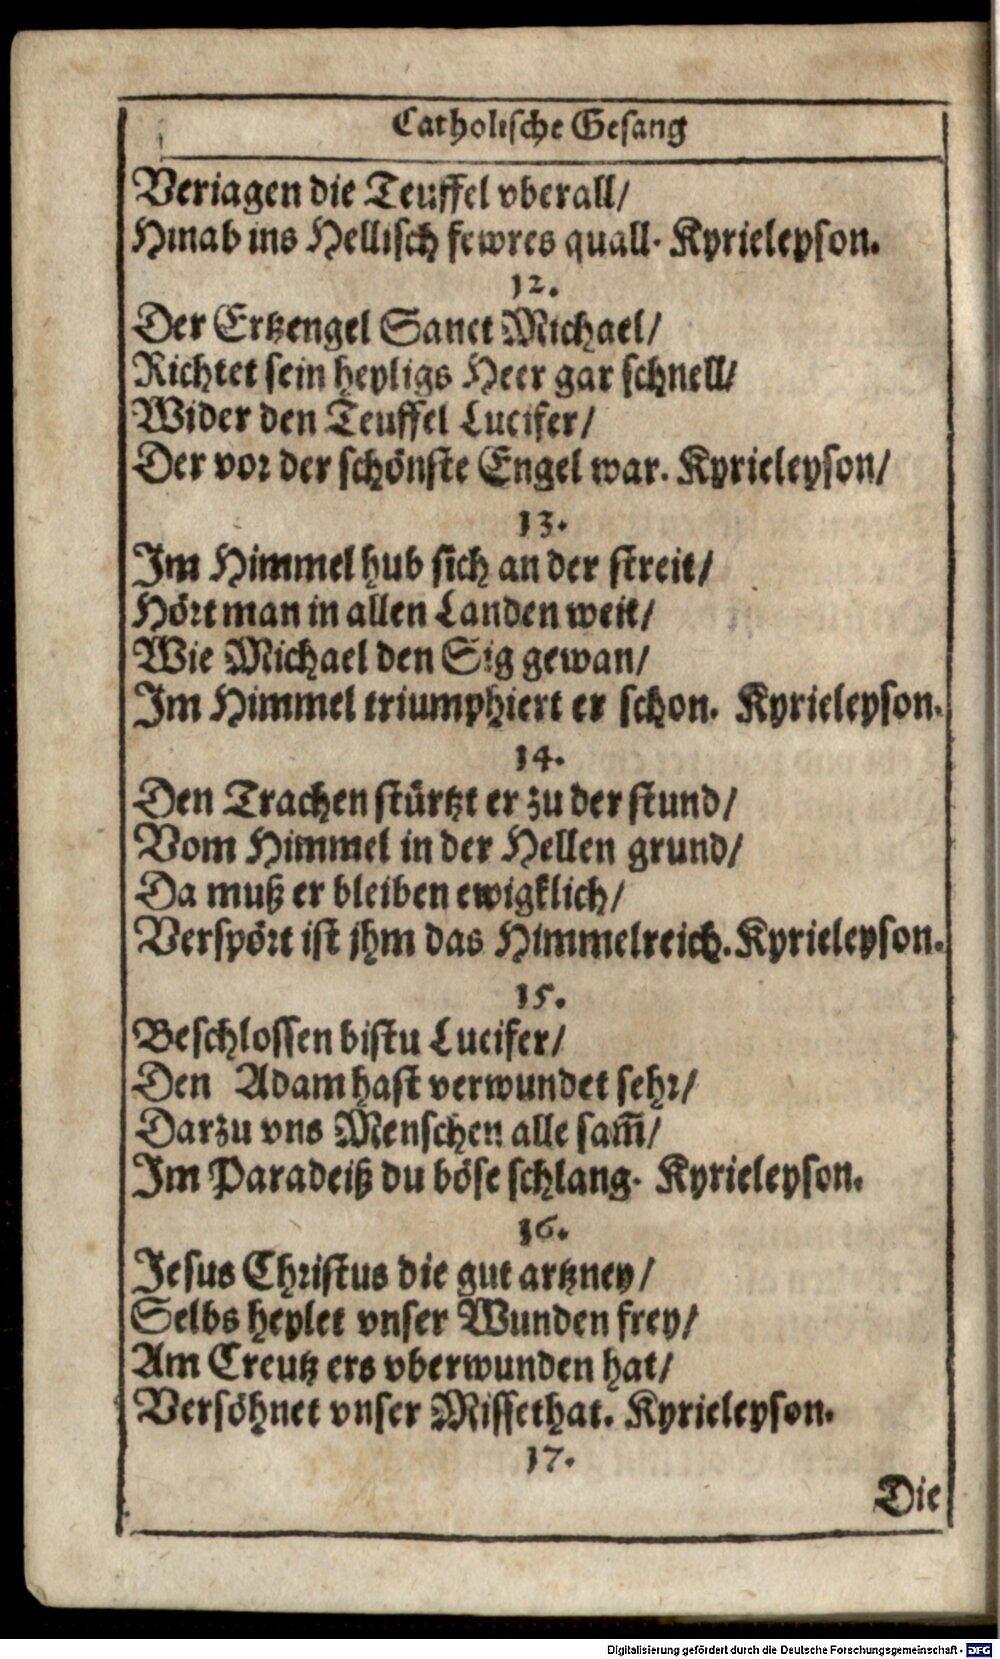 Catholische Gesang
Veriagen die Teuffel vberall/
Hinab ins Hellisch fewres quall. Kyrieleyson.
12.
Der Ertzengel Sanct Michael/
Richtet sein heyligs Heer gar schnell/
Wider den Teuffel Lucifer/
Der vor der schönste Engel war. Kyrieleyson/
13.
Im Himmel hub sich an der streit/
Hört man in allen Landen weit/
Wie Michael den Sig gewan/
Im Himmel triumphiert er schon. Kyrieleyson.
14.
Den Trachen stürtzt er zu der stund/
Vom Himmel in der Hellen grund/
Da muß er bleiben ewigklich/
Verspört ist jhm das Himmelreich. Kyrieleyson.
15.
Beschlossen bistu Lucifer/
Den Adam hast verwundet sehr/
Darzu vns Menschen alle sam̃/
Im Paradeiß du böse schlang. Kyrieleyson.
16.
Jesus Christus die gut artzney/
Selbs heylet vnser Wunden frey/
Am Creutz ers vberwunden hat/
Versöhnet vnser Missethat. Kyrieleyson.
17.
Die
Digitalisierung gefördert durch die Deutsche Forschungsgemeinschaft - DFG